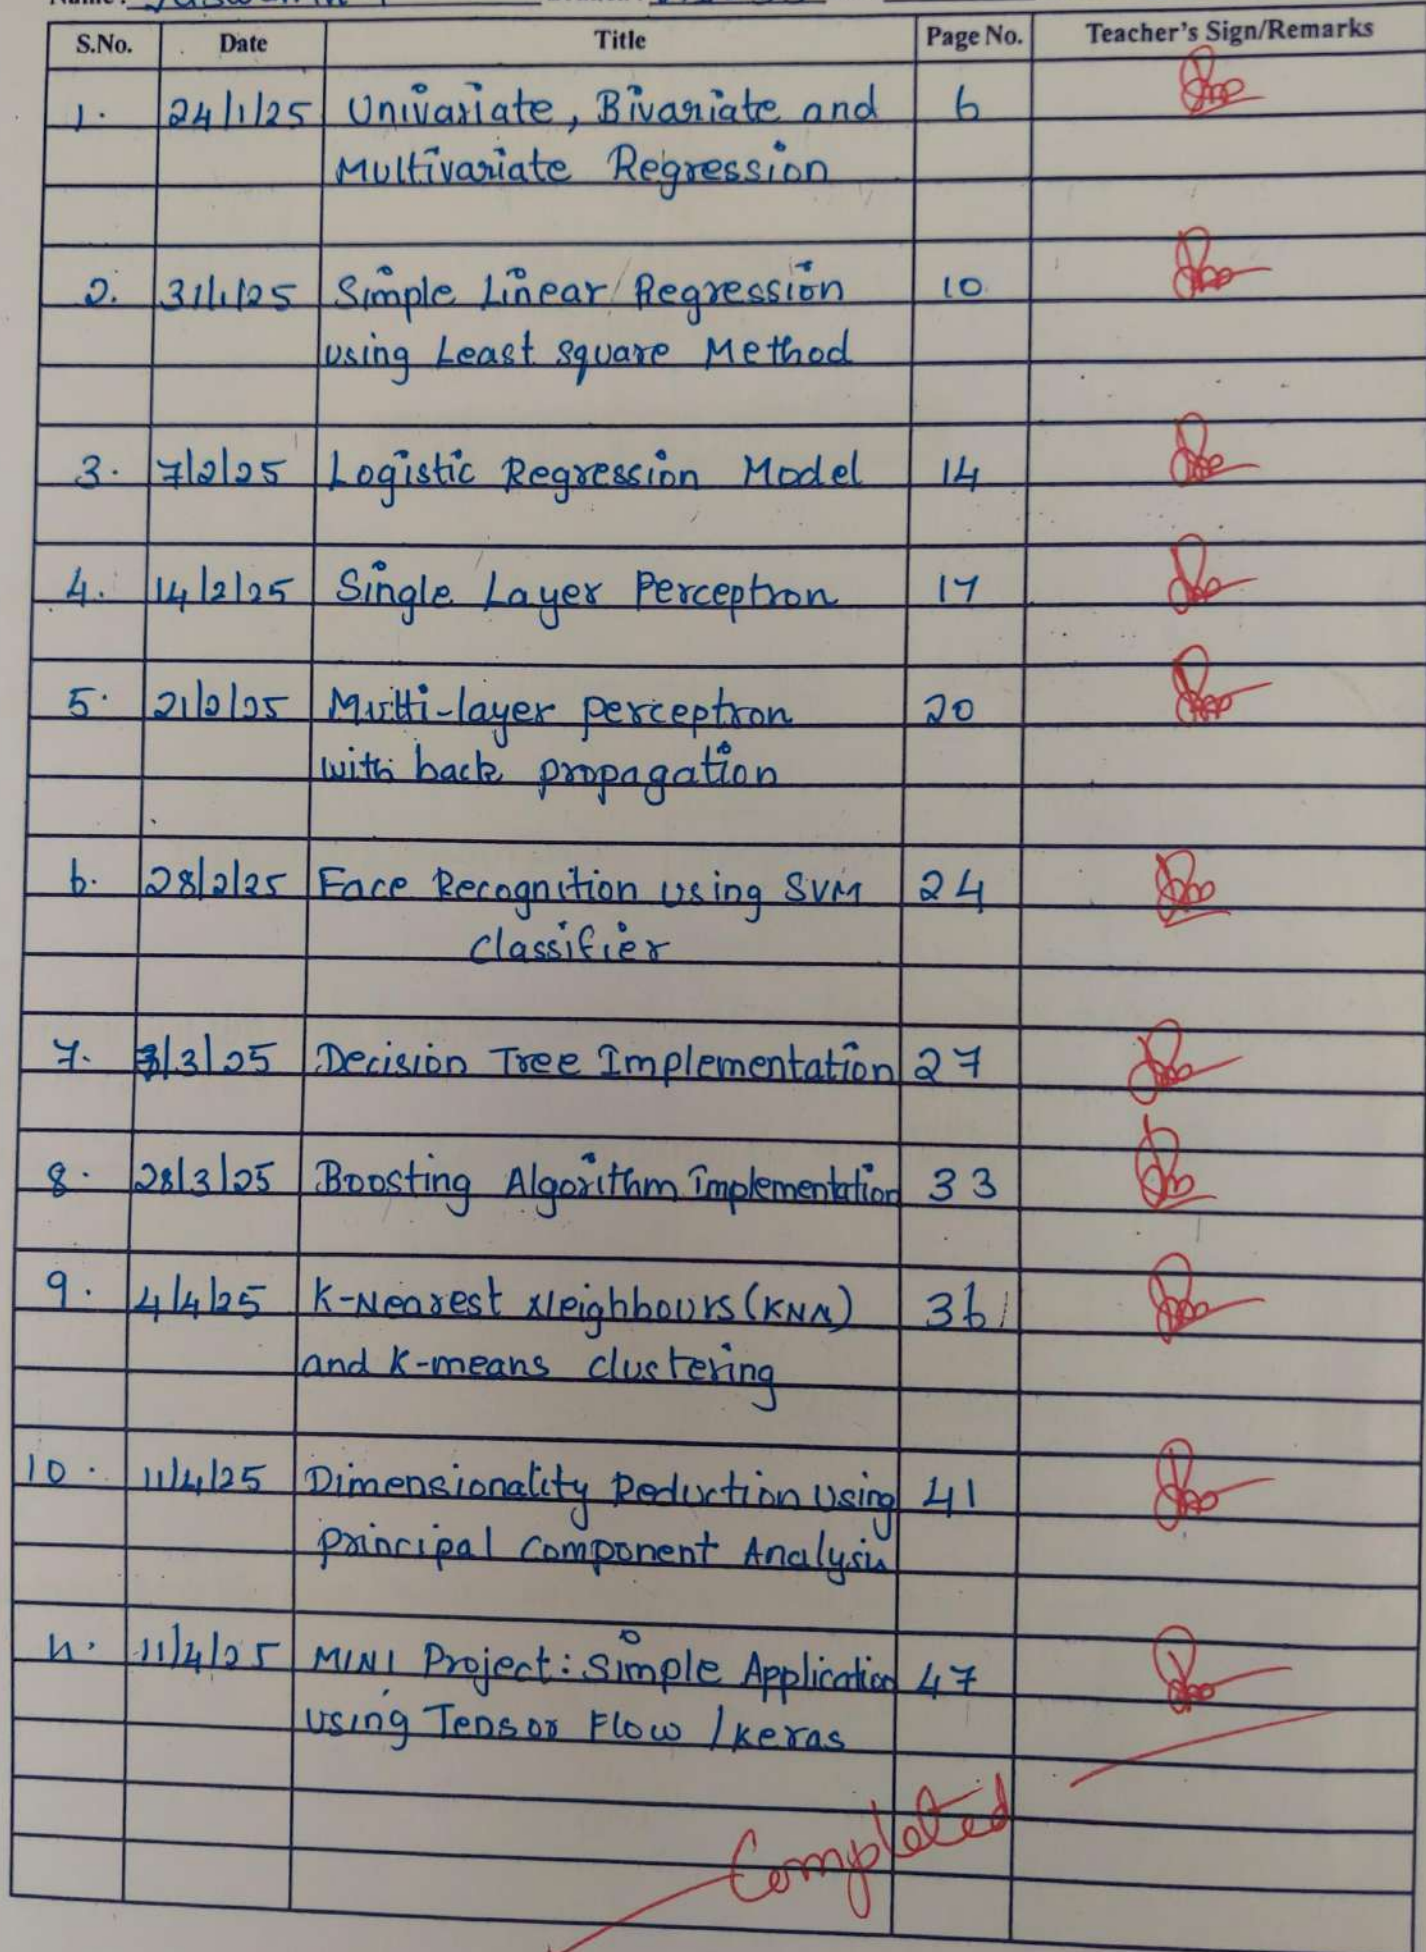 S.No. Date Title Page No. Teacher's Sign/Remarks
1. 24/1/25 Univariate, Bivariate and 6
Multivariate Regression
2. 31/1/25 Simple Linear Regression 10
using Least square Method
3. 7/2/25 Logistic Regression Model 14
4. 14/2/25 Single Layer Perceptron 17
5. 21/2/25 Multi-layer perceptron 20
with back propagation
6. 28/2/25 Face Recognition using SVM 24
classifier
7. /3/25 Decision Tree Implementation 27
8. 28/3/25 Boosting Algorithm Implementation 33
9. 4/4/25 K-Nearest Neighbours (KNN) 36
and K-means clustering
10. 11/4/25 Dimensionality Reduction using 41
principal component Analysis
11. 11/4/25 MINI Project: Simple Application 47
using Tensor Flow / keras
Completed